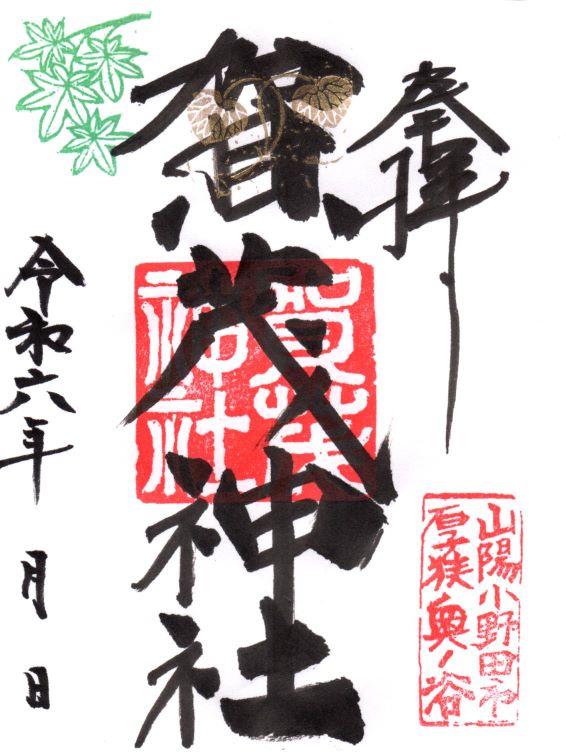 奉拝
山陽小野田市
厚狭奥ノ谷
賀茂神社
賀茂
神社
令和六年 月 日